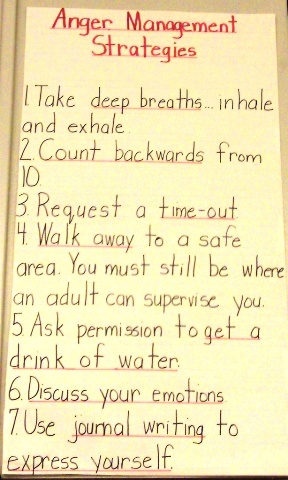 Anger Management
Strategies
1. Take deep breaths... inhale
and exhale
2. Count backwards from
10.
3. Request a time-out
4. Walk away to a safe
area. You must still be where
an adult can supervise you.
5. Ask permission to get a
drink of water.
6. Discuss your emotions
7. Use journal writing to
express yourself.